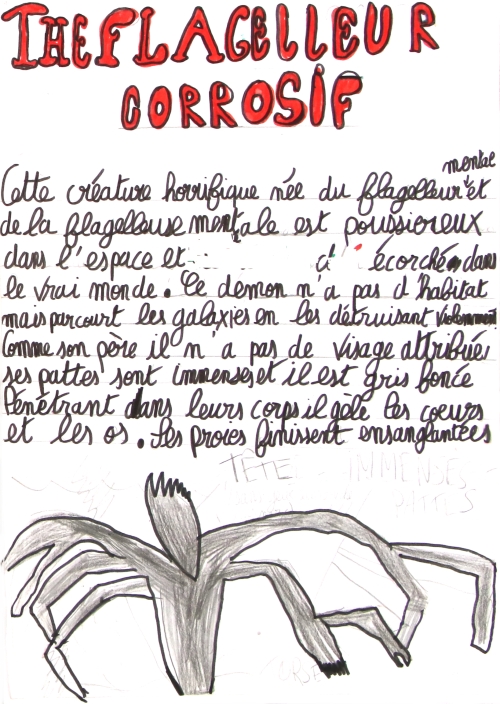 THE FLAGELLEUR
CORROSIF
Cette créature horrifique née du flagelleur mental et
de la flagelleuse mentale est poussioreux
dans l'espace et d' écorché dans
le vrai monde. Ce demon n'a pas d'habitat
mais parcourt les galaxies en les détruisant violemment
Comme son père il n'a pas de visage attribuée
ses pattes sont immenses et il est gris foncé
Pénétrant dans leurs corps il gèle les coeurs
et les os. Ses proies finissent ensanglantées
TÊTE IMMENSES
PATTES